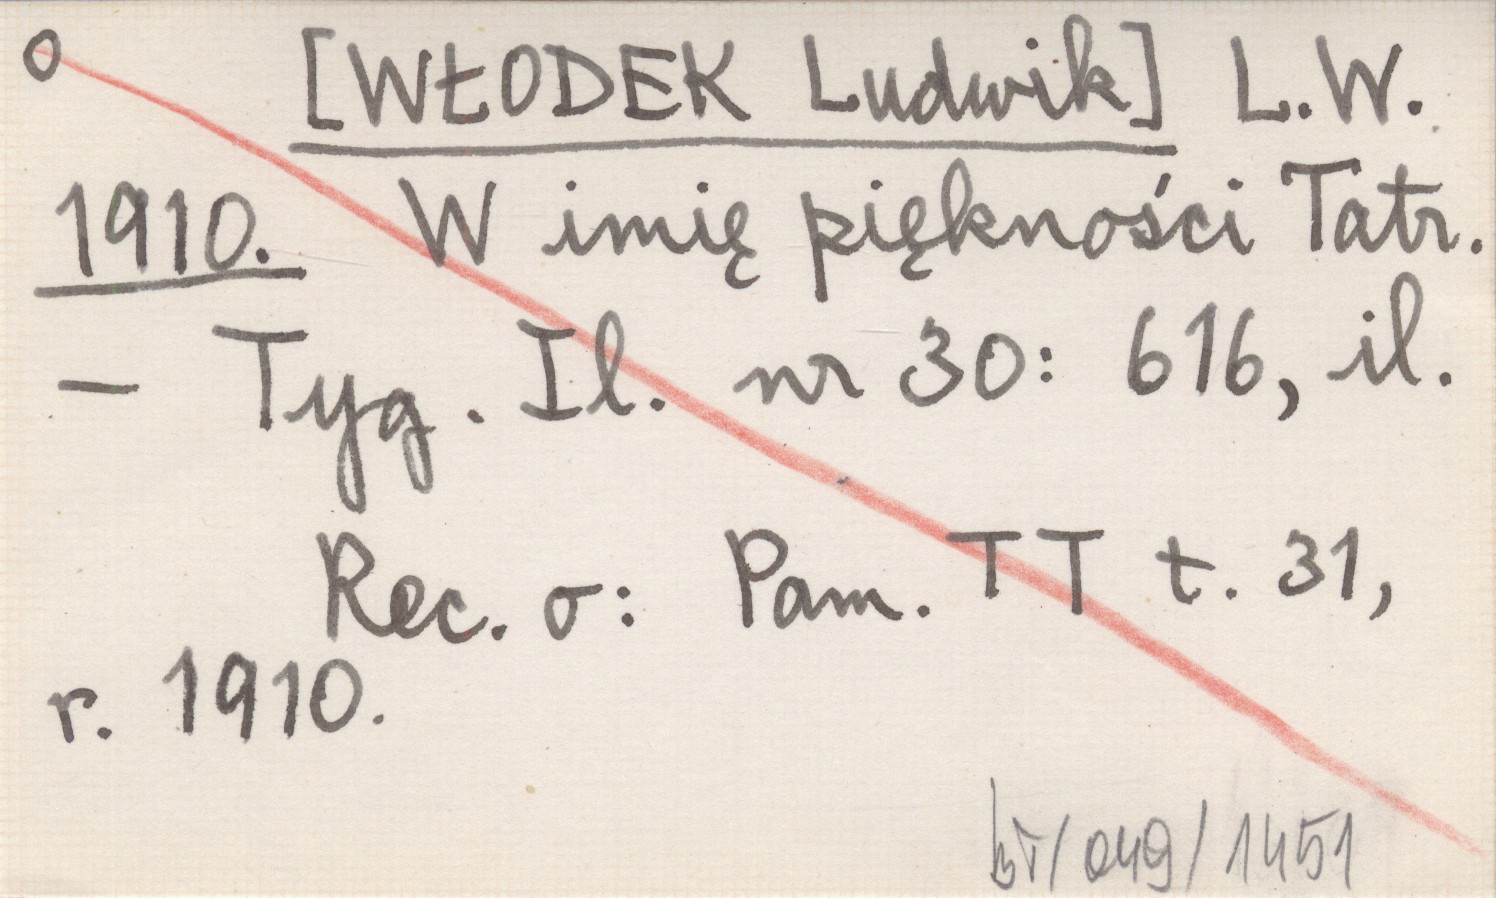 o [WŁODEK Ludwik] L.W.
1910. W imię piękności Tatr.
— Tyg. Il. nr 30: 616, il.
Rec. o: Pam. TT t. 31,
r. 1910.
bT/049/1451